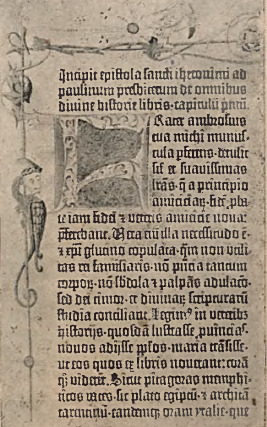 Incipit epistola sancti iheronimi ad
paulinum presbiterum de omnibus
divine historie libris · capitulū pmū.
Frater ambrosius
tua michi munus-
cula pferens · detulit
sił et suavissimas
lrās · q̄ a principio
amiciciarū · fidē pba-
te iam fidei ⁊ veteris amicicie nova :
pferebant. Vera enī illa necessitudo ē ·
⁊ xpi glutino copulata · qm̄ non vtili-
tas rei familiaris · nō pn̄cia tantum
corporū · nō sbdola ⁊ palpās adulacō ·
sed dei timor · et divinarū scripturarū
studia conciliant. Legim9 in veterib3
historijs · quosdā lustrasse puīncias ·
novos adijsse pplos · maria trāsisse ·
ut eos quos ex libris noverant : corā
qq3 viderēt. Sicut pitagoras memphi-
ticos vates · sic plato egiptū · ⁊ architā
tarentinū · eandemq3 oram ytalie · que